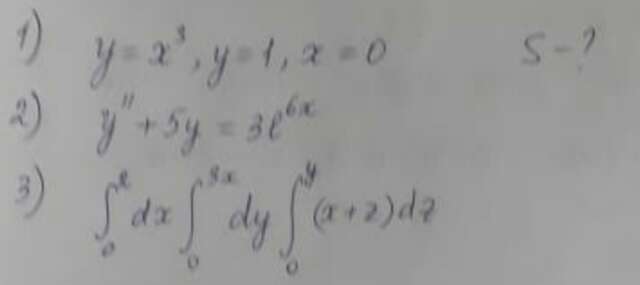 1) y = x³, y = 1, x = 0 S - ?
2) y" + 5y = 3e^{6x}
3) ∫₀² dx ∫₀^{3x} dy ∫₀^{y} (x+z)dz